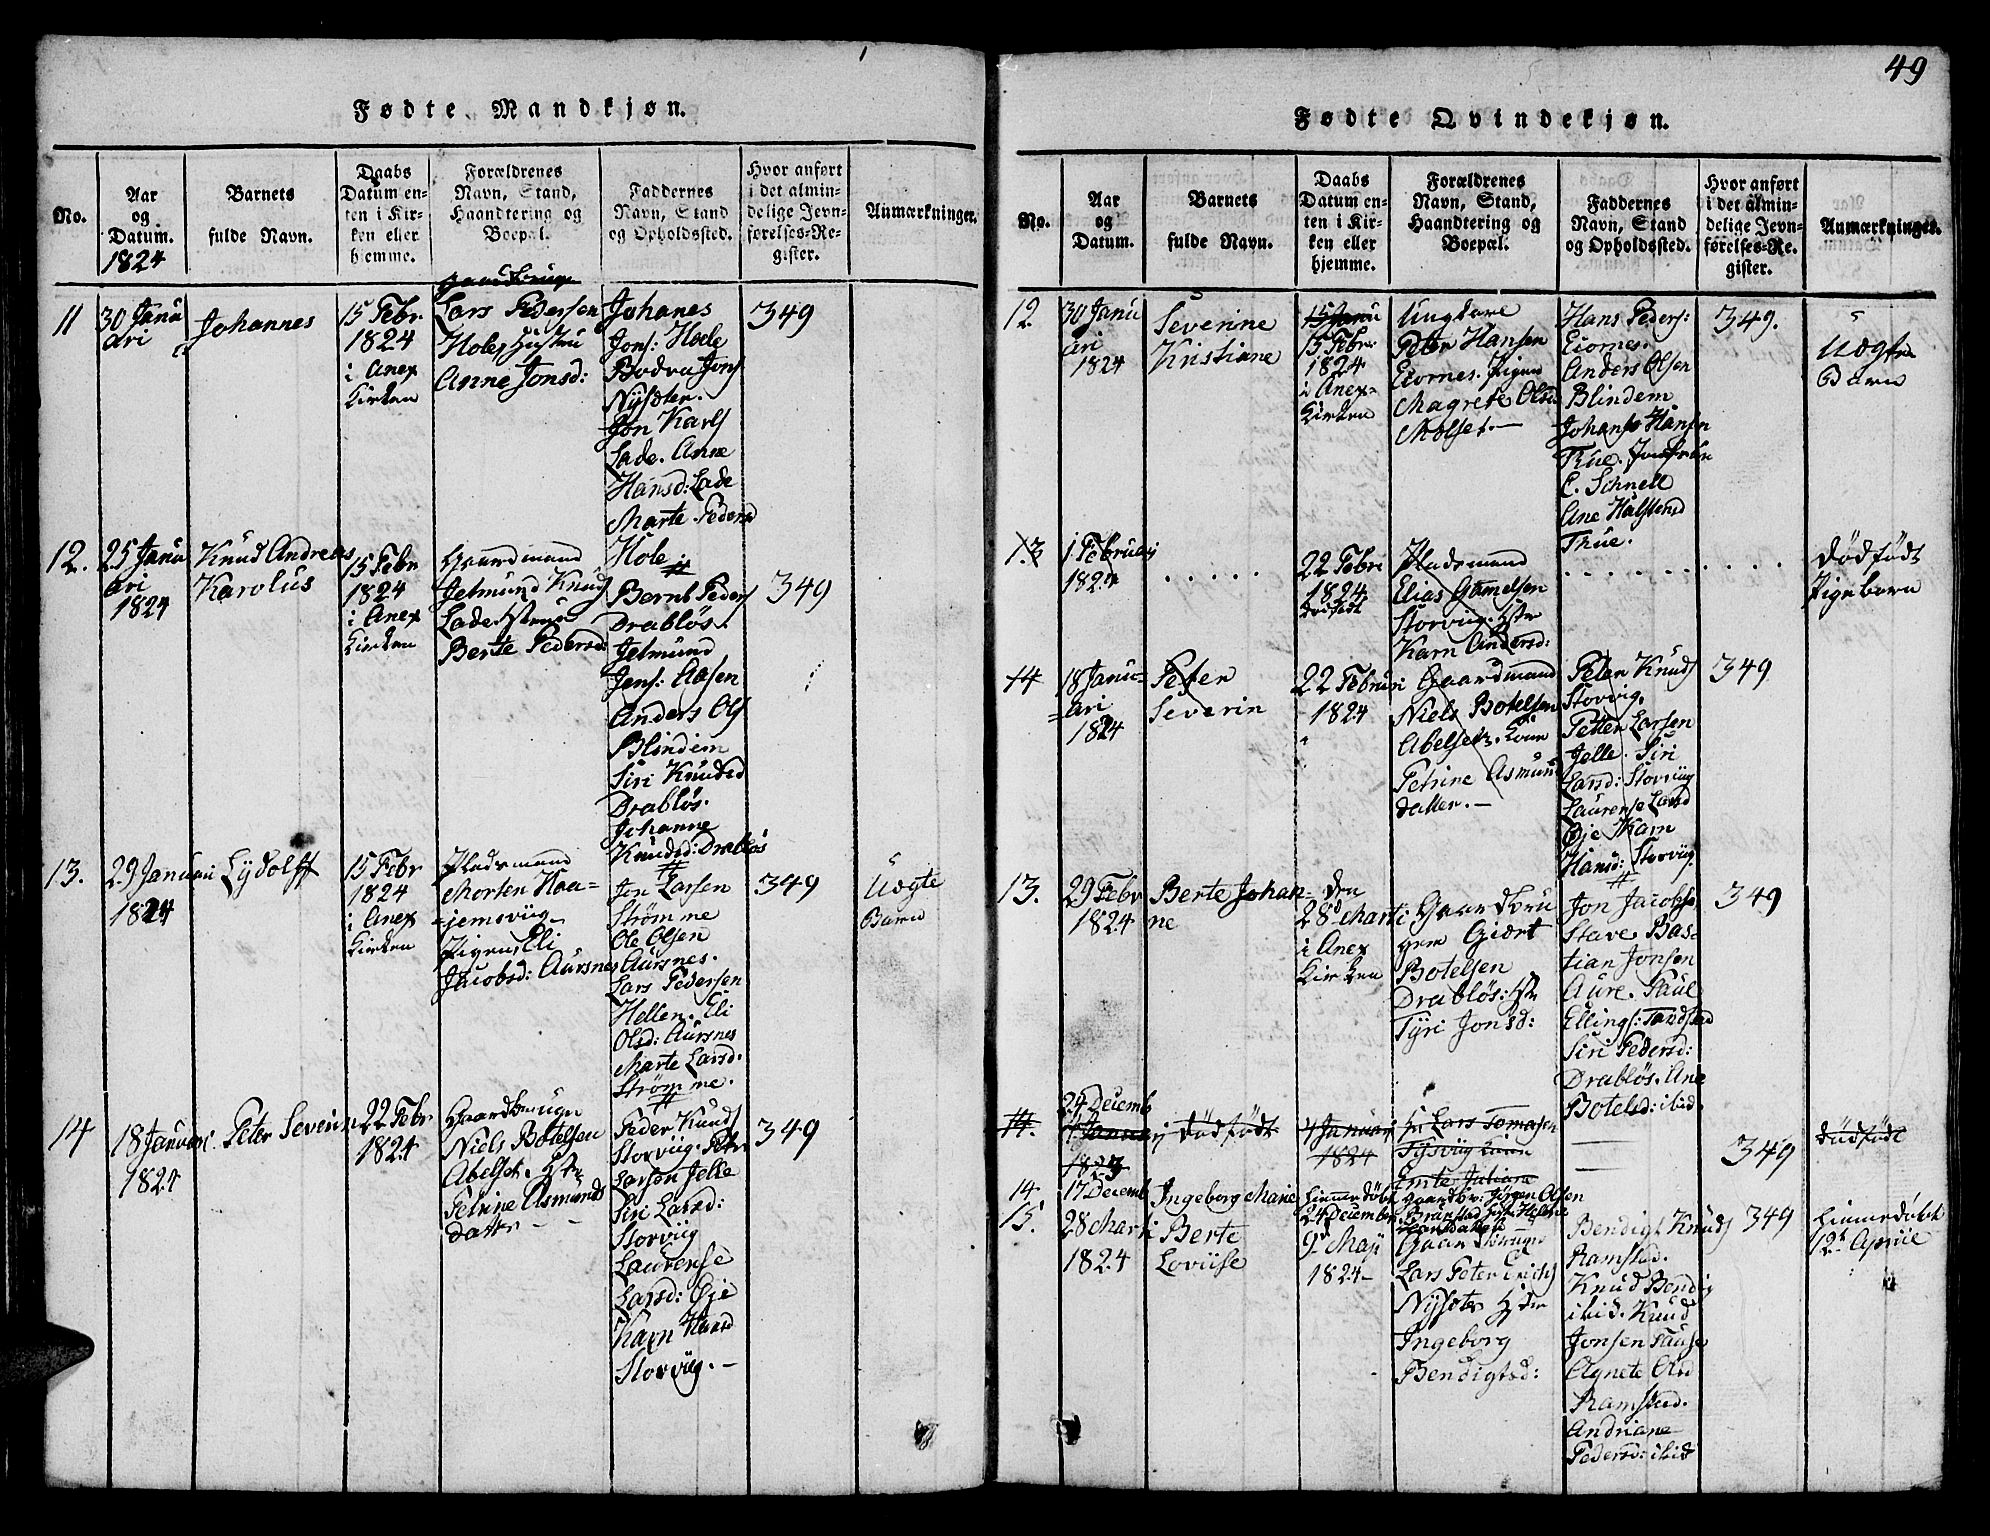 49
Fødte Mandkjøn.
No.
Aar
og
Datum.
1824
Barnets
fulde Navn.
Daabs
Datum en-
ten i Kir-
ken eller
hjemme.
Forældrenes
Navn, Stand,
Haandtering og
Boepæl.
Faddernes
Navn, Stand
og Opholdssted.
Hvor anført
i det almin-
delige Jevn-
førelses-Re-
gister.
Anmærkninger.
11
30 Janu
ari
Johannes
15 Febr
1824
i Anex
Kirken
Lars Pedersen
Hole, Hustru
Anne Jonsd:
Johanes
Jons: Hole
Jons
Nysæter.
Jon Karls
Lade. Anne
Hansd: Lade
Marte Pedersd
Hole
349
12.
25 Janu
ari
1824
Knud Andreas
Karolus
15 Febr
1824
i Anex
Kirken
Gaardmand
Jetmund Knuds
Lade. Hstru
Berte Pedersd:
Bernt Peders
Drabløs.
Jetmund
Jens: Aasen
Anders Ols
Blindem
Siri Knudsd
Drabløs.
Johanne
Knudsd: Drabløs
349
13.
29 Januari
1824
Lydolff
15 Febr
1824
i Anex
Kirken
Pladsmand
Morten Haa=
=jemsviig
Pigen, Eli
Jacobsd: Aursnes
Jon Larsen
Strømme
Ole Olsen
Aursnes.
Lars Pedersen
Hellen. Eli
Olsd: Aursnes
Marte Larsd.
Strømme.
349
Uægte
Barn
14
18 Januari.
1824
Peter Severin
22 Febr
1824
Gaardbruger
Niels Botelsen
Abelset. Hstr
Petrine Asmunds
datter - -
Peder Knuds
Storviig. Petr
Larsen Jelle
Siri Larsd:
Storviig
Laurense
Larsd: Øje
Karn Hansd
Storviig. -
349
Fødte Qvindekjøn.
No.
Aar
og
Datum.
Barnets
fulde Navn.
Daabs
Datum en-
ten i Kir-
ken eller
hjemme.
Forældrenes
Navn, Stand,
Haandtering og
Boepæl.
Faddernes
Navn, Stand
og Opholdssted.
Hvor anført
i det almin-
delige Jevn-
førelses-Re-
gister.
Anmærkninger.
12.
30 Janu
ari
1824
Severine
Kristiane
15 Janu
15 Febr.
1824
i Anex-
Kirken
Ungkare
Peter Hansen
Eiornes. Pigen
Magrete Olsd.
Molset. -
Hans Peders:
Eiornes.
Anders Olsen
Blindem
Johans Hansen
Thue. Jomfrue
C. Schnell
Ane Halstensd
Thue.
349.
Uægte
Barn
13
1 Februarj
1824
. . . . .
22 Febr
1824
Pladsmand
Elias Gamelsen
Storviig. Hstr
Karn Andersd:
. . . . . . . . . .
Dødfødt
Pigebarn
14
18 Janu-
=ari
1824
Peter
Severin
22 Februari
1824
Gaardmand
Niels Botelsen
Abelseth. Kone
Petrine Asmun
datter. -
Peter Knuds
Storvig.
Petter Larsen
Jelle. Siri
Larsd: Storviig
Laurense Larsd
Øje Karn
Hansd: Storviig.
349
13.
29 Febr
1824
Berte Johan-
ne
den
28d Marti
i Anex
Kirken
Gaardbru
gem Giørt
Botelsen
Drabløs: Hstr
Tyri Jonsd:
Jon Jacobse
Stave. Bas-
tian Jonsen
Aure. Paul
Ellings: Tandstad
Siri Pedersd:
Drabløs. Ane
Botelsd: ibid.
349
14.
24 Decemb
1823
dødfødt
4 Januari
1824
Lars Tomasen
349
dødfødt
14
17 Decemb
Ingeborg Marie
hiemedøbt
24 December
Gaardbr: Jørgen Olsen
15.
28 Marti
1824
Berte
Loviise
9d Maji
1824-
Gaardbruger
Lars Peter Erichs
Nysæter Hstr
Ingeborg
Bendigtsd:
Bendigt Knuds
Ramstad.
Knud Bendig
ibid. Knud
Jonsen Stause
Agnete Olsd
Ramstad.
Andriane
Pedersd: ibid
349
hiemedøbt
12t April